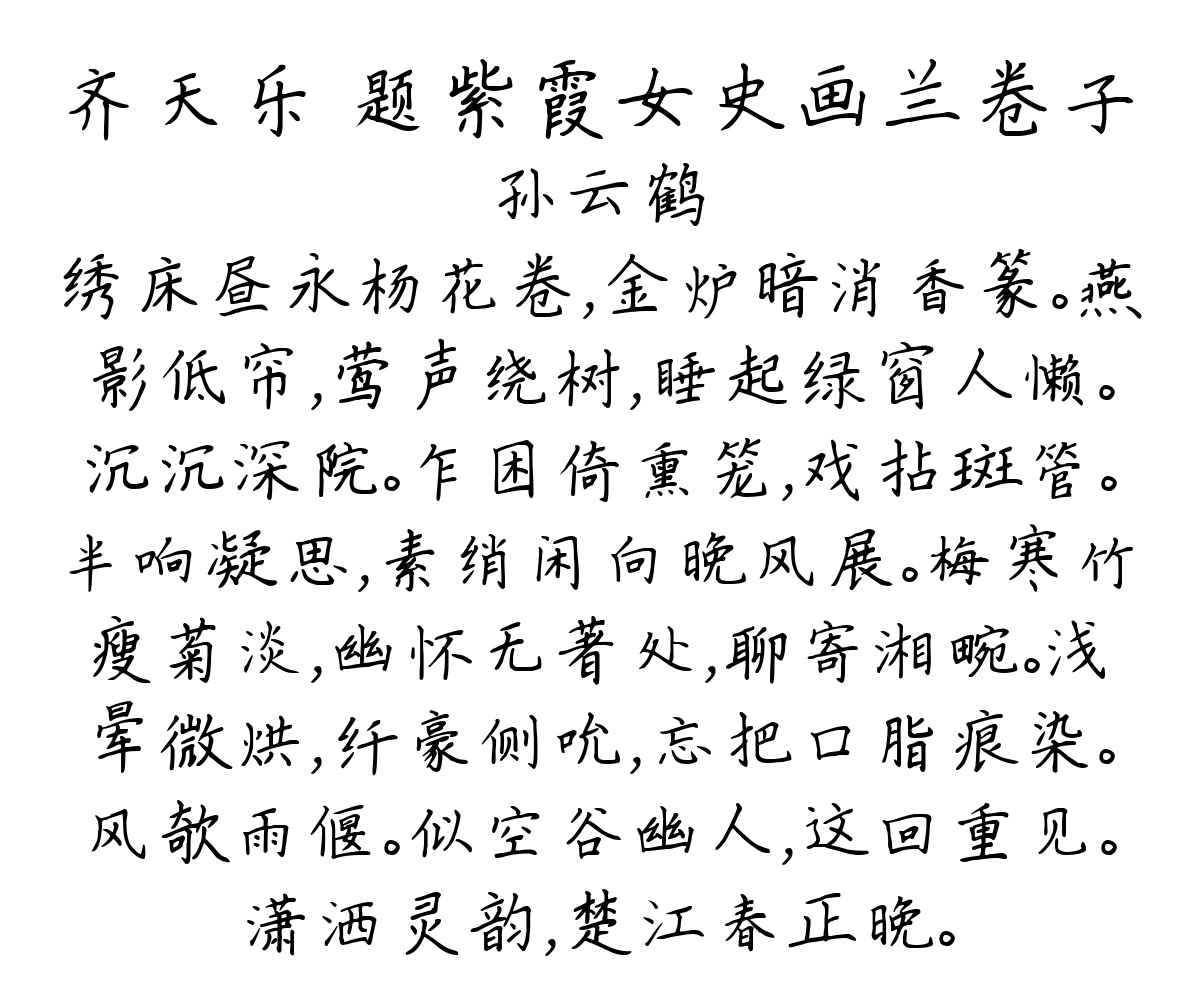 齐天乐 题紫霞女史画兰卷子
孙云鹤
绣床昼永杨花卷,金炉暗消香篆。燕
影低帘,莺声绕树,睡起绿窗人懒。
沉沉深院。乍困倚熏笼,戏拈斑管。
半响凝思,素绡闲向晚风展。梅寒竹
瘦菊淡,幽怀无著处,聊寄湘畹。浅
晕微烘,纤豪侧吮,忘把口脂痕染。
风欹雨偃。似空谷幽人,这回重见。
潇洒灵韵,楚江春正晚。